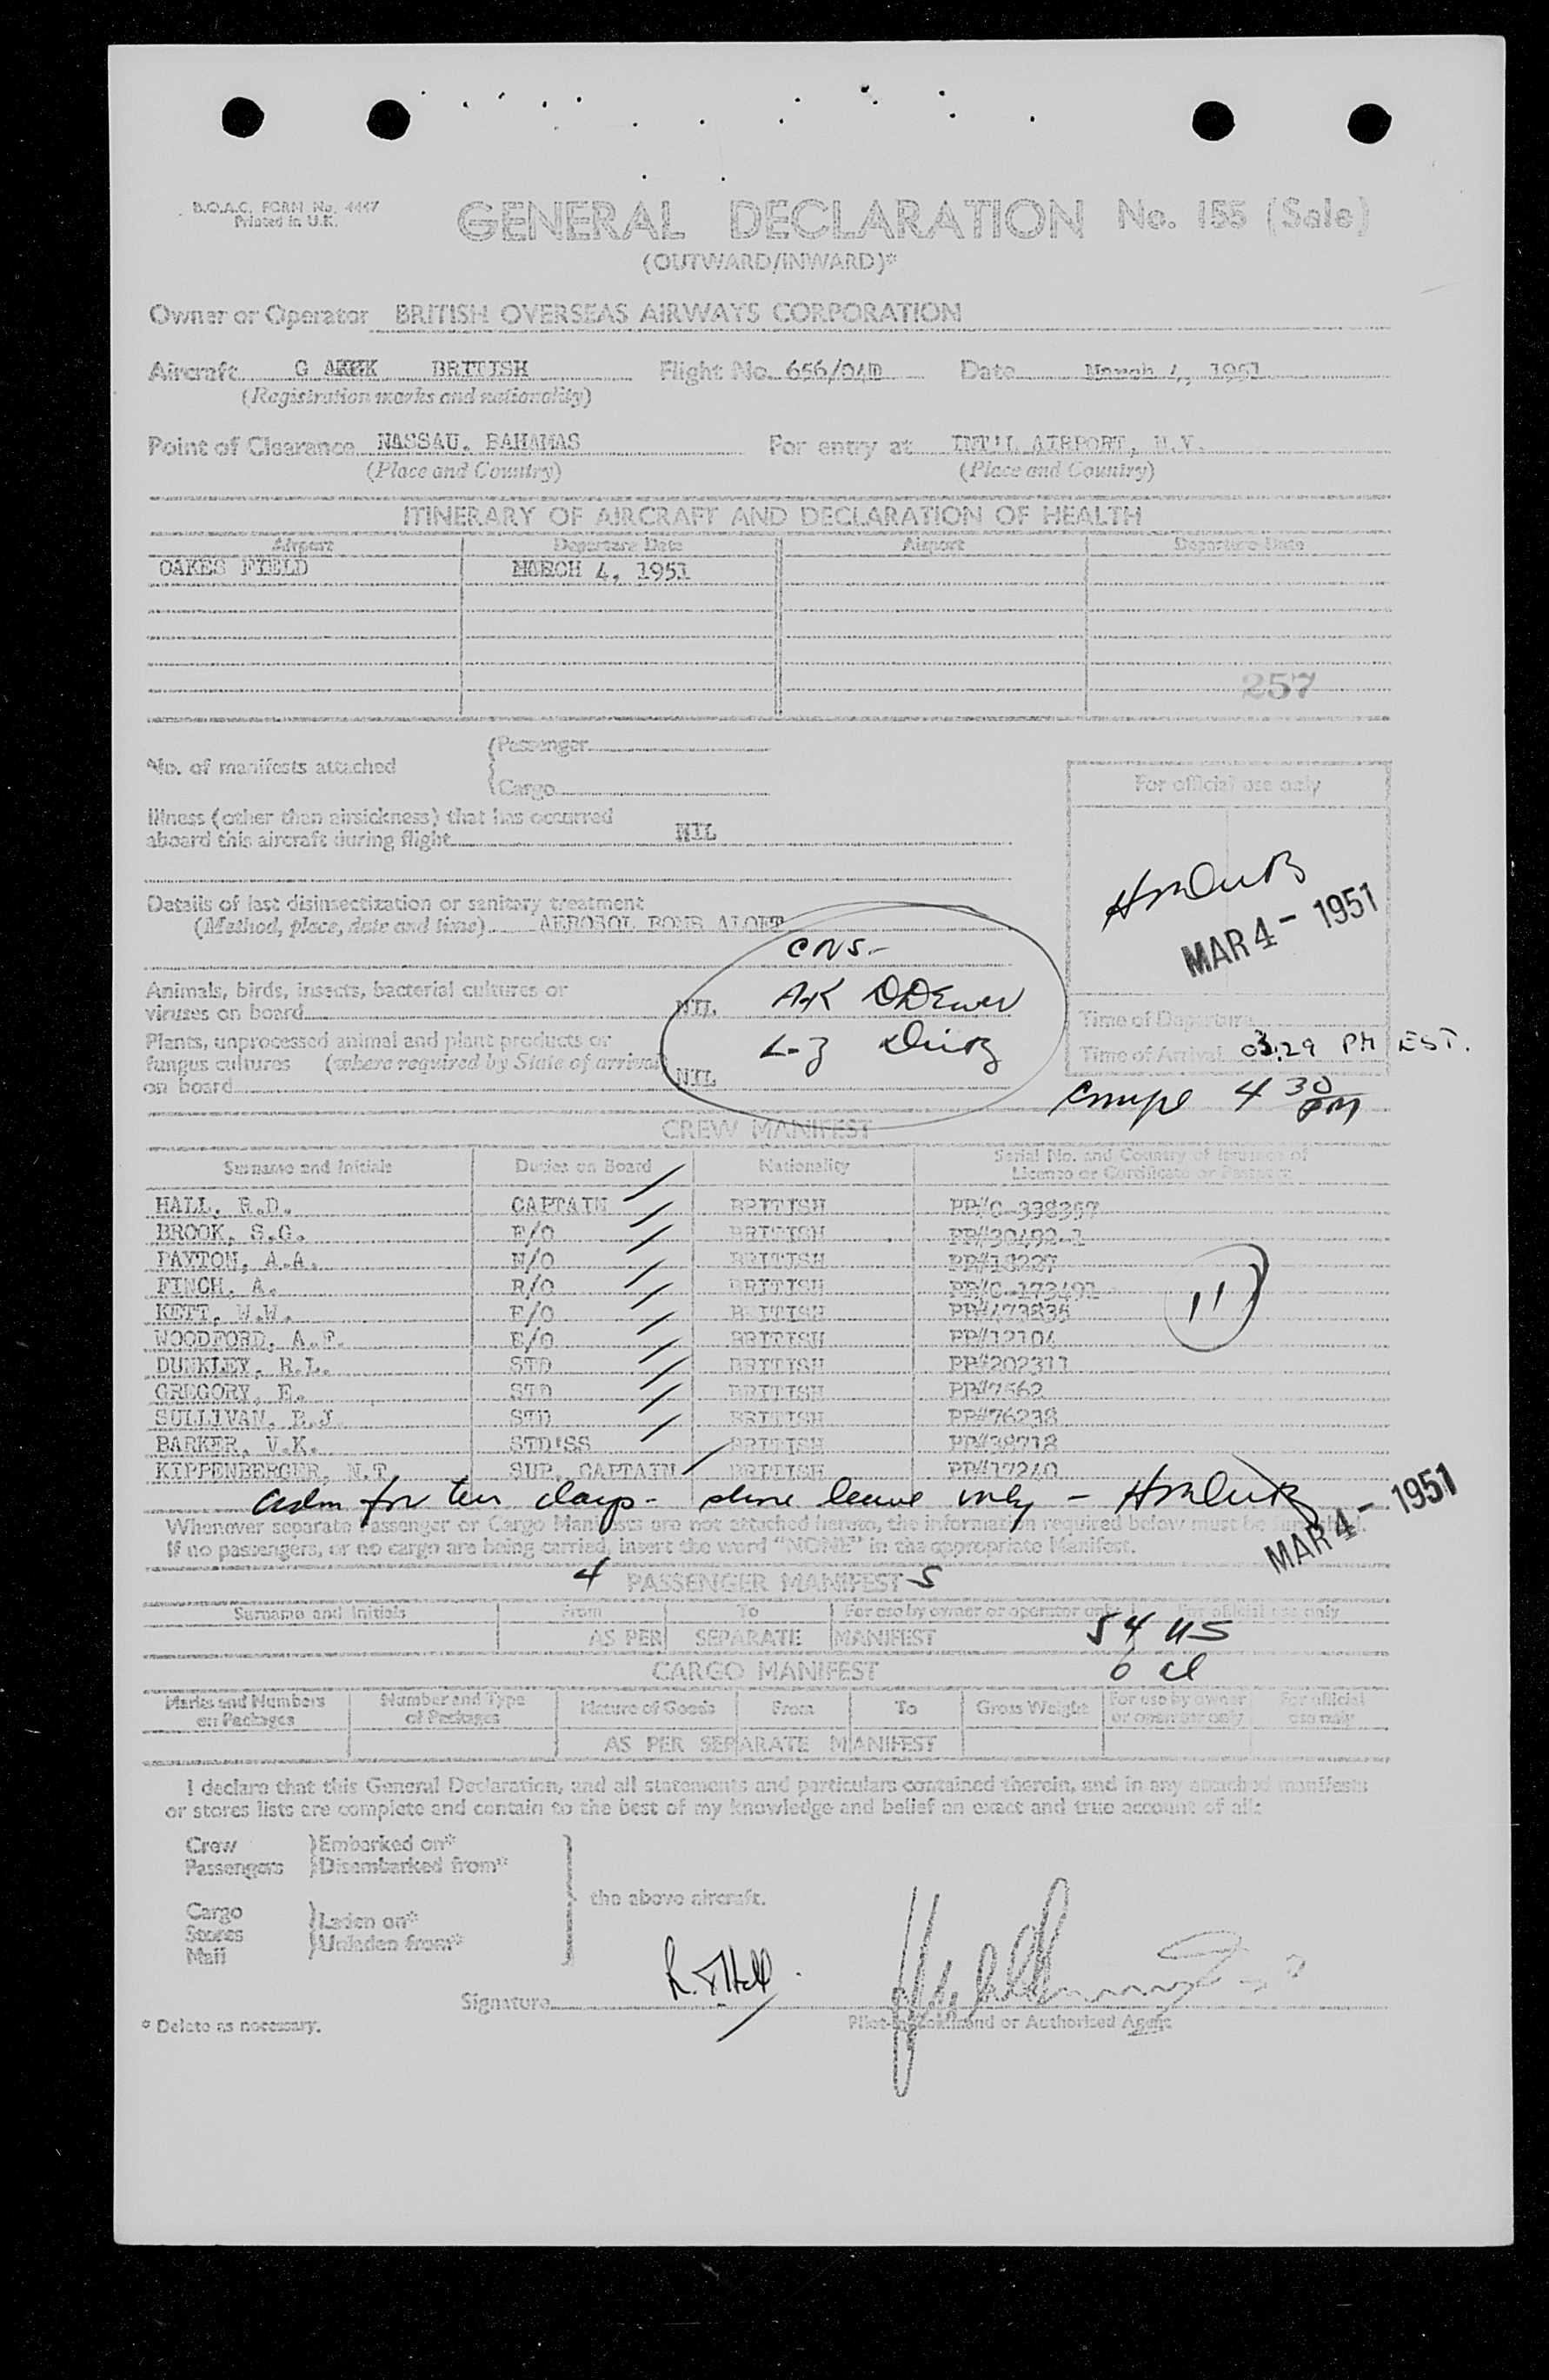 B.O.A.C. FORM No. 4447
Printed in U.K.
GENERAL DECLARATION No. 155 (Sale)
(OUTWARD/INWARD)*
Owner or Operator BRITISH OVERSEAS AIRWAYS CORPORATION
Aircraft G BRITISH Flight No. 656/04D Date March 4, 1951
(Registration marks and nationality)
Point of Clearance NASSAU, BAHAMAS For entry at INT'L AIRPORT, N.Y.
(Place and Country) (Place and Country)
ITINERARY OF AIRCRAFT AND DECLARATION OF HEALTH
Airport Departure Date Airport Departure Date
OAKES FIELD MARCH 4, 1951
257
No. of manifests attached
(Passenger
(Cargo
For official use only
Illness (other than airsickness) that has occurred
aboard this aircraft during flight NIL
Details of last disinsectization or sanitary treatment
(Method, place, date and time) AEROSOL BOMB ALOFT
MAR 4 - 1951
CNS-
Animals, birds, insects, bacterial cultures or
viruses on board NIL
Plants, unprocessed animal and plant products or
fungus cultures (where required by State of arrival)
on board NIL
Time of Departure
Time of Arrival 03.29 PM EST.
4 30 PM
CREW MANIFEST
Surname and Initials Duties on Board Nationality Serial No. and Country of Issuance of
License or Certificate or Passport
HALL, R.D. CAPTAIN BRITISH PP#C-338357
BROOK, S.G. F/O BRITISH PP#30492-1
PAYTON, A.A. N/O BRITISH PP#18227
FINCH, A. R/O BRITISH PP#C-173491
KETT, W.W. E/O BRITISH PP#473835
WOODFORD, A.F. E/O BRITISH PP#12104
DUNKLEY, R.L. STD BRITISH PP#202311
GREGORY, E. STD BRITISH PP#7562
SULLIVAN, B.J. STD BRITISH PP#76238
BARKER, V.K. STD'SS BRITISH PP#38718
KIPPENBERGER, N.T. SUP. CAPTAIN BRITISH PP#17240
11
adm for ten days - shore leave only -
MAR 4 - 1951
Whenever separate Passenger or Cargo Manifests are not attached hereto, the information required below must be furnished.
If no passengers, or no cargo are being carried, insert the word "NONE" in the appropriate Manifest.
4 PASSENGER MANIFEST S
Surname and Initials From To For use by owner or operator only For official use only
AS PER SEPARATE MANIFEST
54 US
6
CARGO MANIFEST
Marks and Numbers on Packages Number and Type of Packages Nature of Goods From To Gross Weight For use by owner or operator only For official use only
AS PER SEPARATE MANIFEST
I declare that this General Declaration, and all statements and particulars contained therein, and in any attached manifests
or stores lists are complete and contain to the best of my knowledge and belief an exact and true account of all:
Crew
Passengers
Embarked on*
Disembarked from*
Cargo
Stores
Mail
Laden on*
Unladen from*
the above aircraft.
Signature R. D Hall
Pilot-in-Command or Authorised Agent
* Delete as necessary.